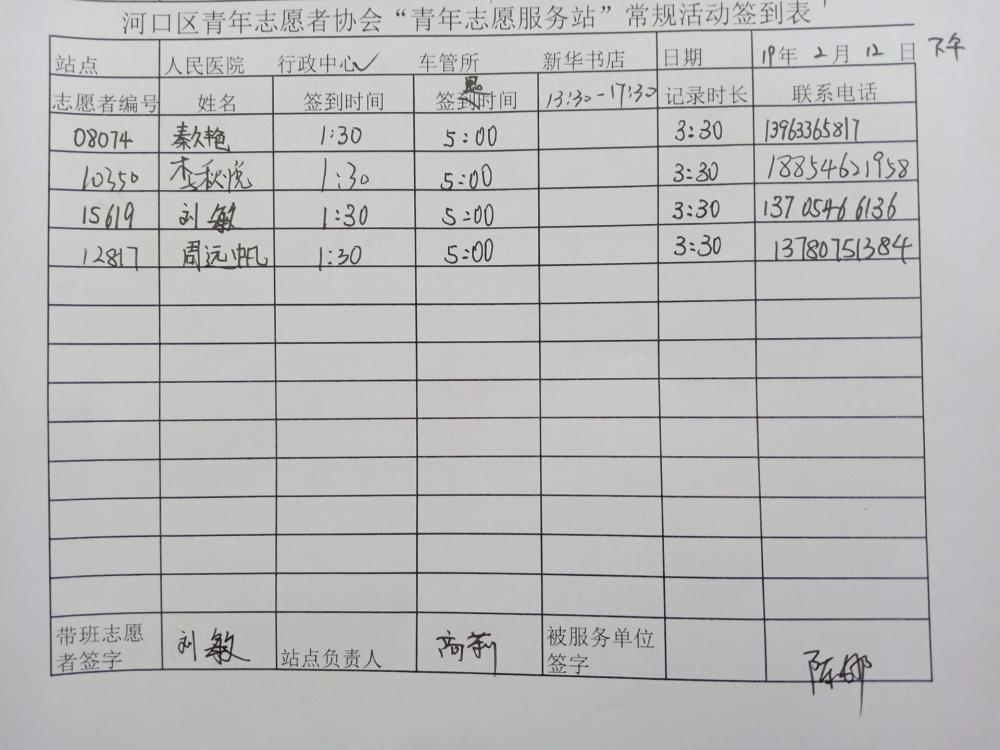 河口区青年志愿者协会“青年志愿服务站”常规活动签到表
站点 人民医院 行政中心✓ 车管所 新华书店 日期 19年 2月 12日 下午
志愿者编号 姓名 签到时间 签到时间 13:30-17:30 记录时长 联系电话
08074 秦艳 1:30 5:00 3:30 13963365817
10350 李秋悦 1:30 5:00 3:30 18854621958
15619 刘敏 1:30 5:00 3:30 13705466136
12817 周远帆 1:30 5:00 3:30 13780751384
带班志愿者签字 刘敏 站点负责人 高莉 被服务单位签字 陈娜